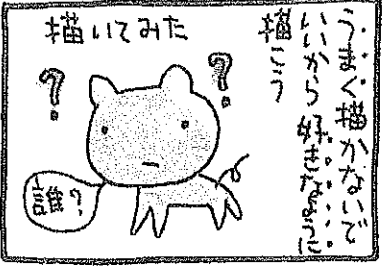 うまく描かないで
いいから好きなように
描こう
描いてみた
?
?
誰?